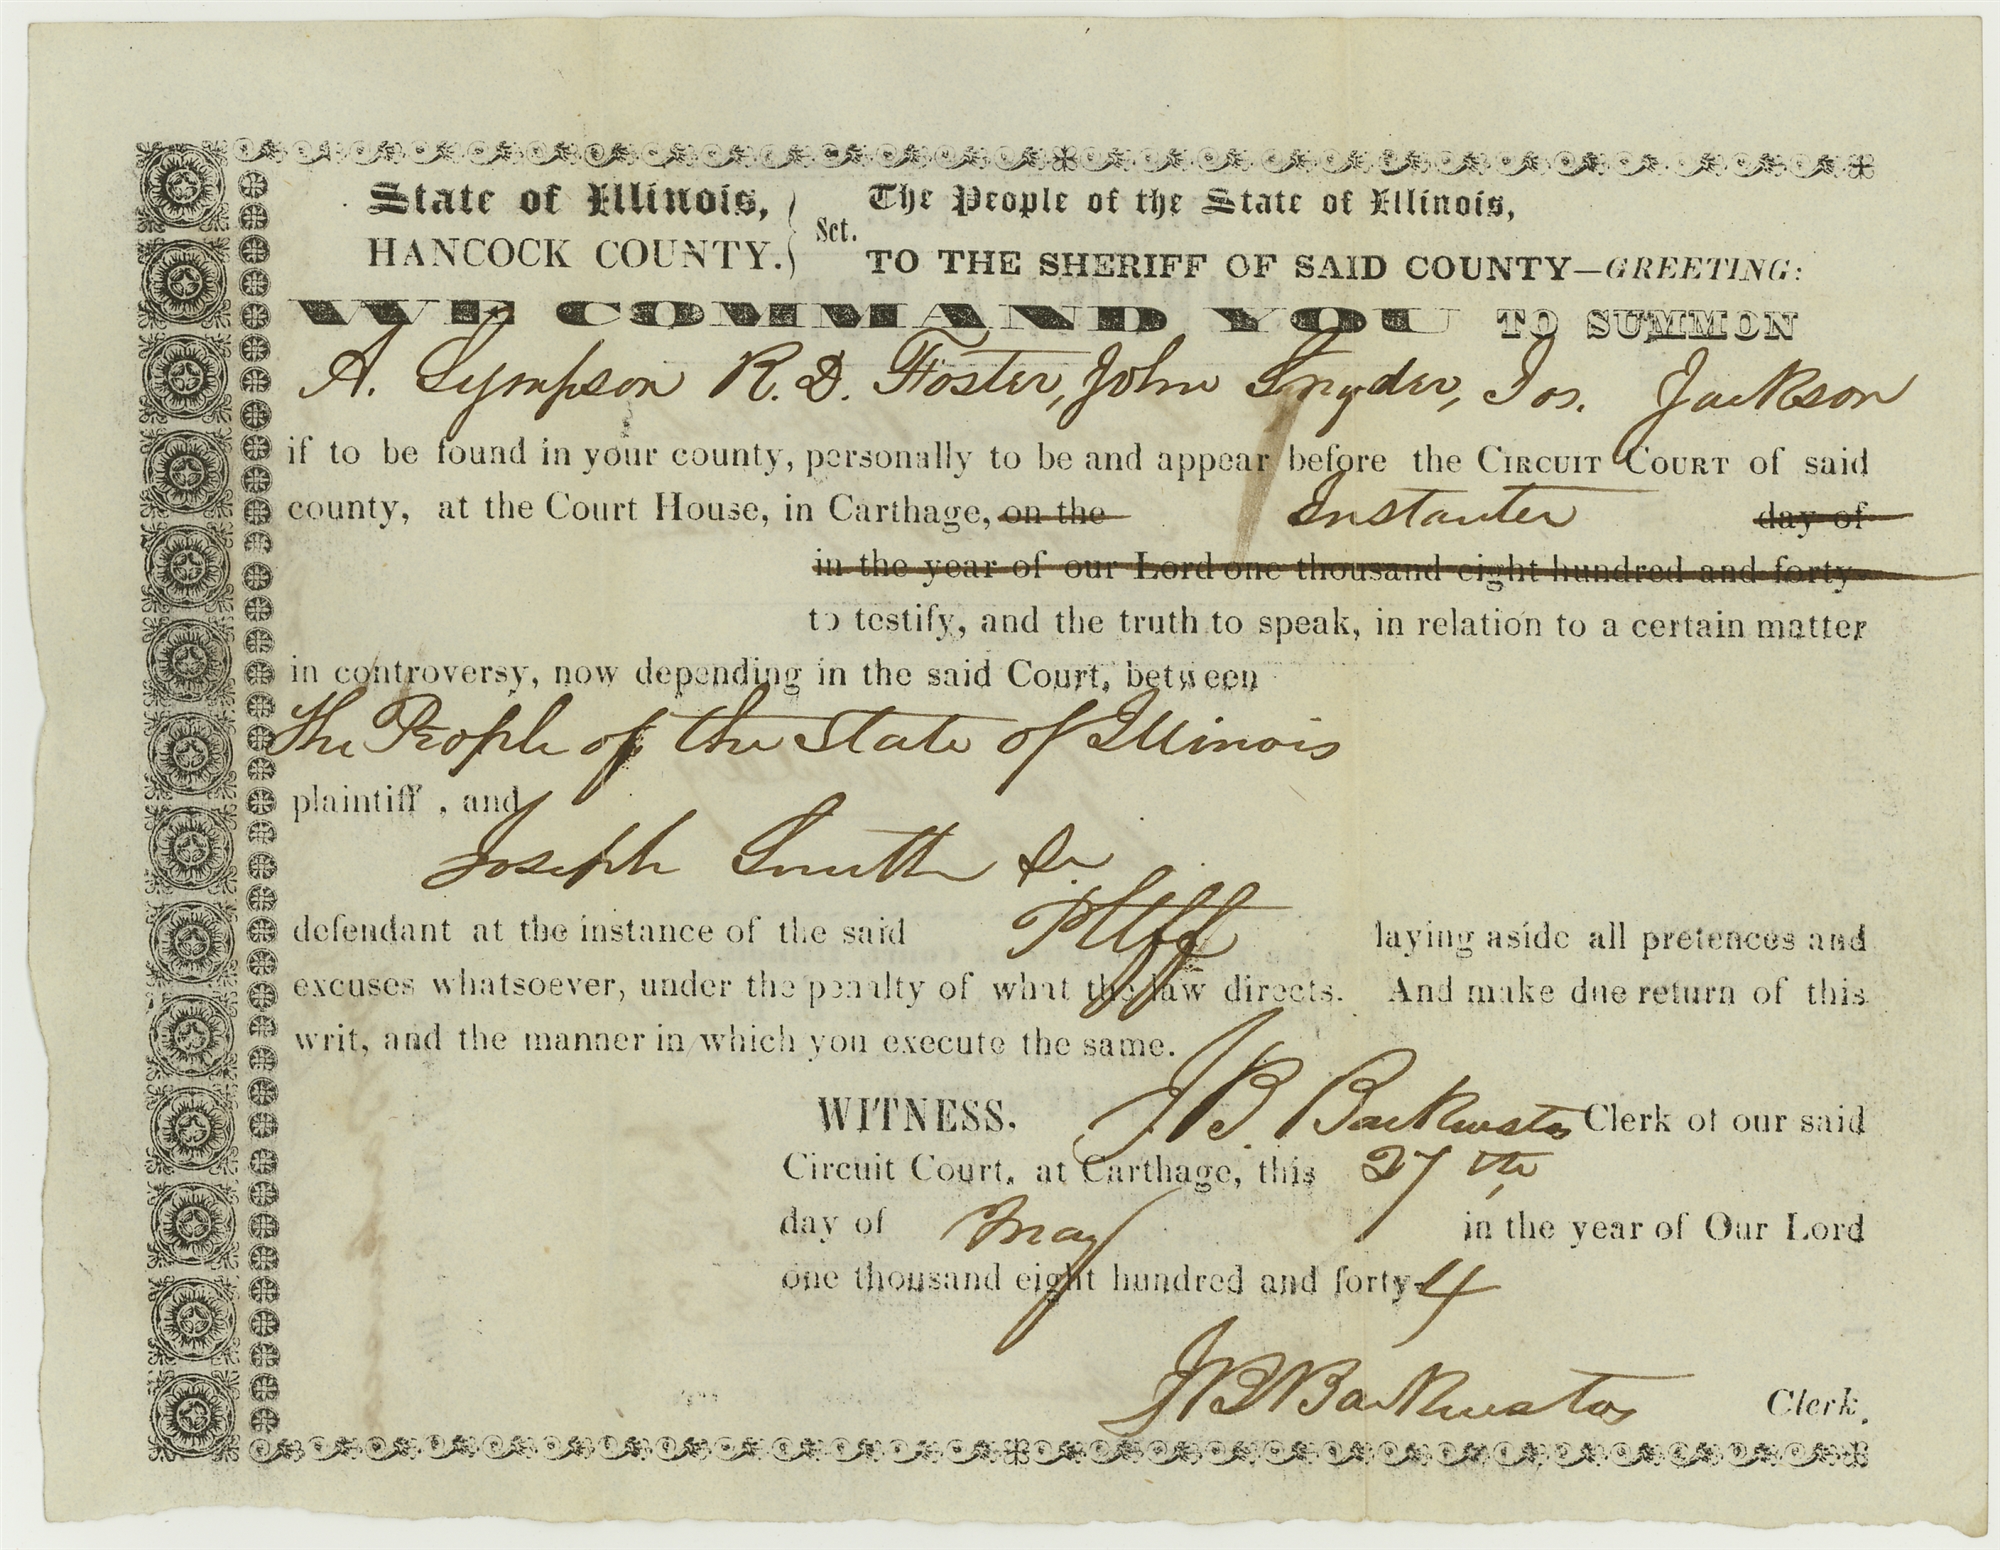 State of Illinois, } Sct. The People of the State of Illinois,
HANCOCK COUNTY. } TO THE SHERIFF OF SAID COUNTY—GREETING:
WE COMMAND YOU TO SUMMON
A. Sympson R. D. Foster, John Snyder, Jos. Jackson
if to be found in your county, personally to be and appear before the CIRCUIT COURT of said
county, at the Court House, in Carthage, on the Instanter day of
in the year of our Lord one thousand eight hundred and forty
to testify, and the truth to speak, in relation to a certain matter
in controversy, now depending in the said Court, between
The People of the State of Illinois
plaintiff , and
Joseph Smith Sr.
defendant at the instance of the said Pltff laying aside all pretences and
excuses whatsoever, under the penalty of what the law directs. And make due return of this
writ, and the manner in which you execute the same.
WITNESS. J B. Backenstos Clerk of our said
Circuit Court, at Carthage, this 27th
day of May in the year of Our Lord
one thousand eight hundred and forty-4
J B Backenstos Clerk.